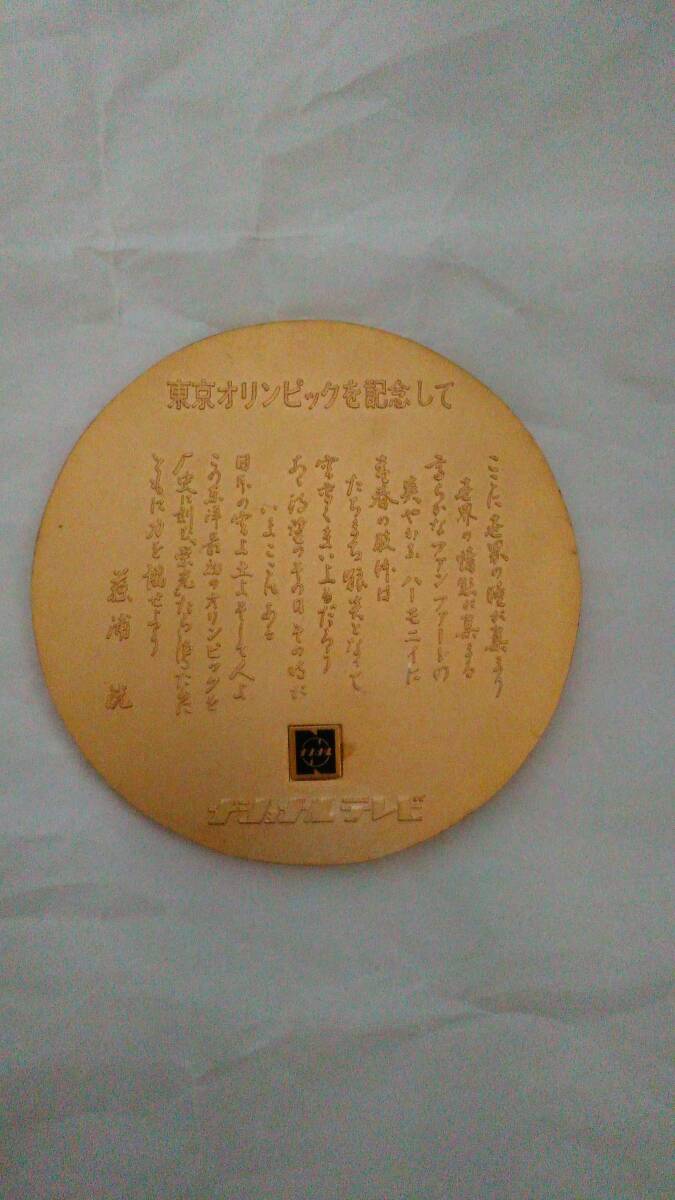 東京オリンピックを記念して
ここに世界の瞳が集まり
世界の情熱が集まる
高らかなファンファーレの
爽やかな ハーモニイに
青春の肢体は
たちまち 焔炎となって
空高くまい上るだろう
あゝ待望のその日 その時が
いまここにある
日本の空よ 土よ そして人よ
この東洋最初のオリンピックを
歴史に刻む 栄光
ともに力を協せよう
藤浦 洸
ナショナルテレビ